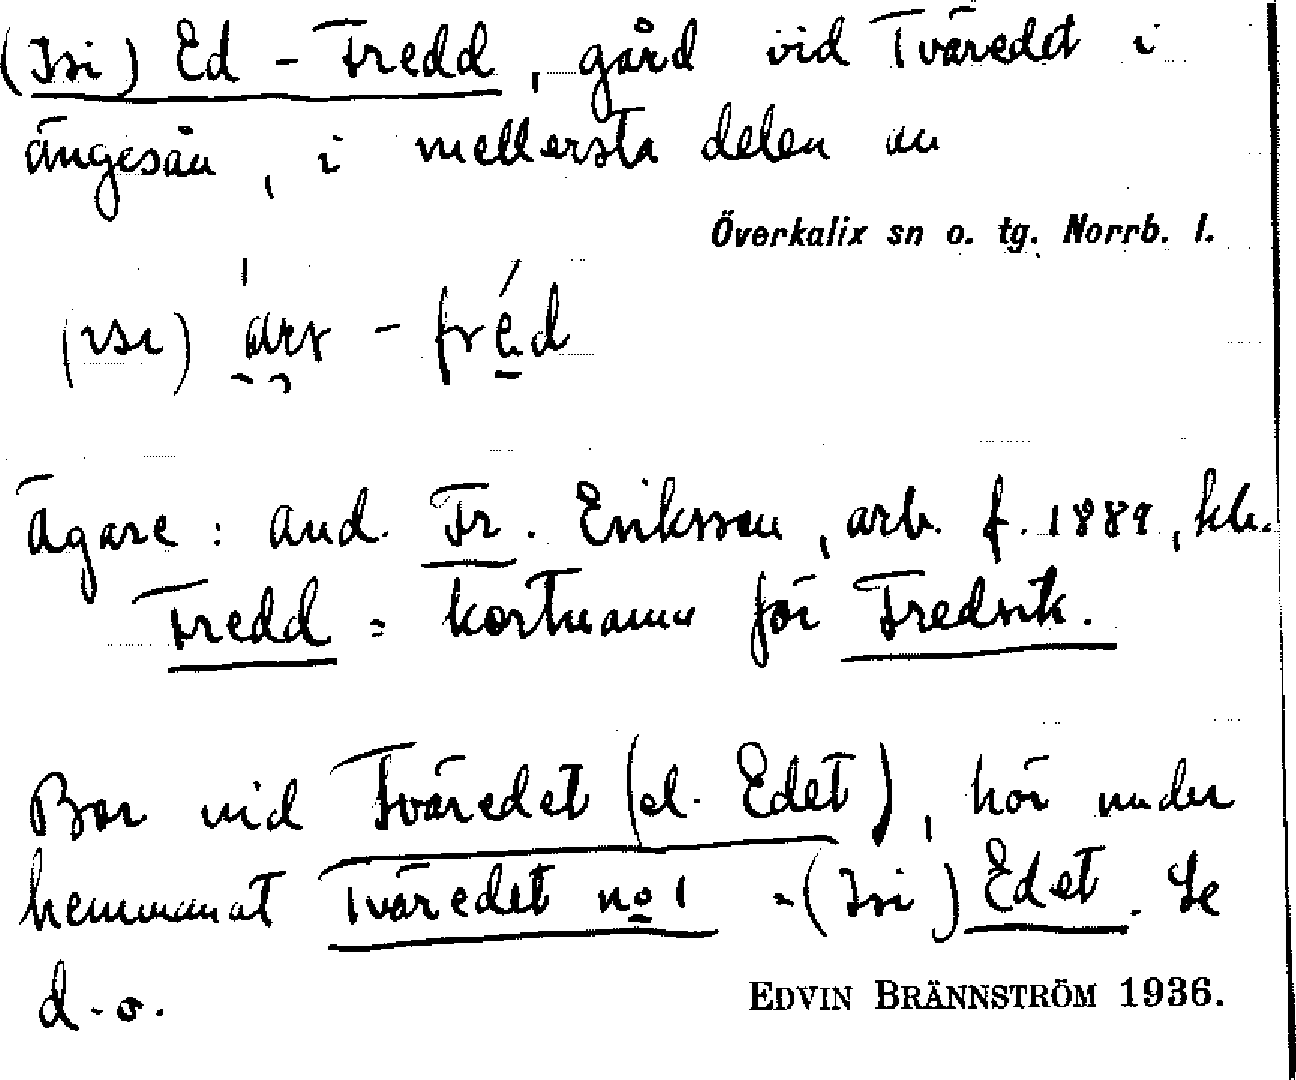 (Isi) Ed - Fredd, gård vid Tväredet i
ängesån, i mellersta delen av
Överkalix sn o. tg. Norrb. l.
(isi) - fréd
Ägare: And. Fr. Eriksson, arb. f. 1889, kl.
Fredd = kortnamn för Fredrik.
Bor vid Tväredet (el. Edet), hör under
hemmanet Tväredet no 1 = (Isi) Edet. Se
d.o.
EDVIN BRÄNNSTRÖM 1936.